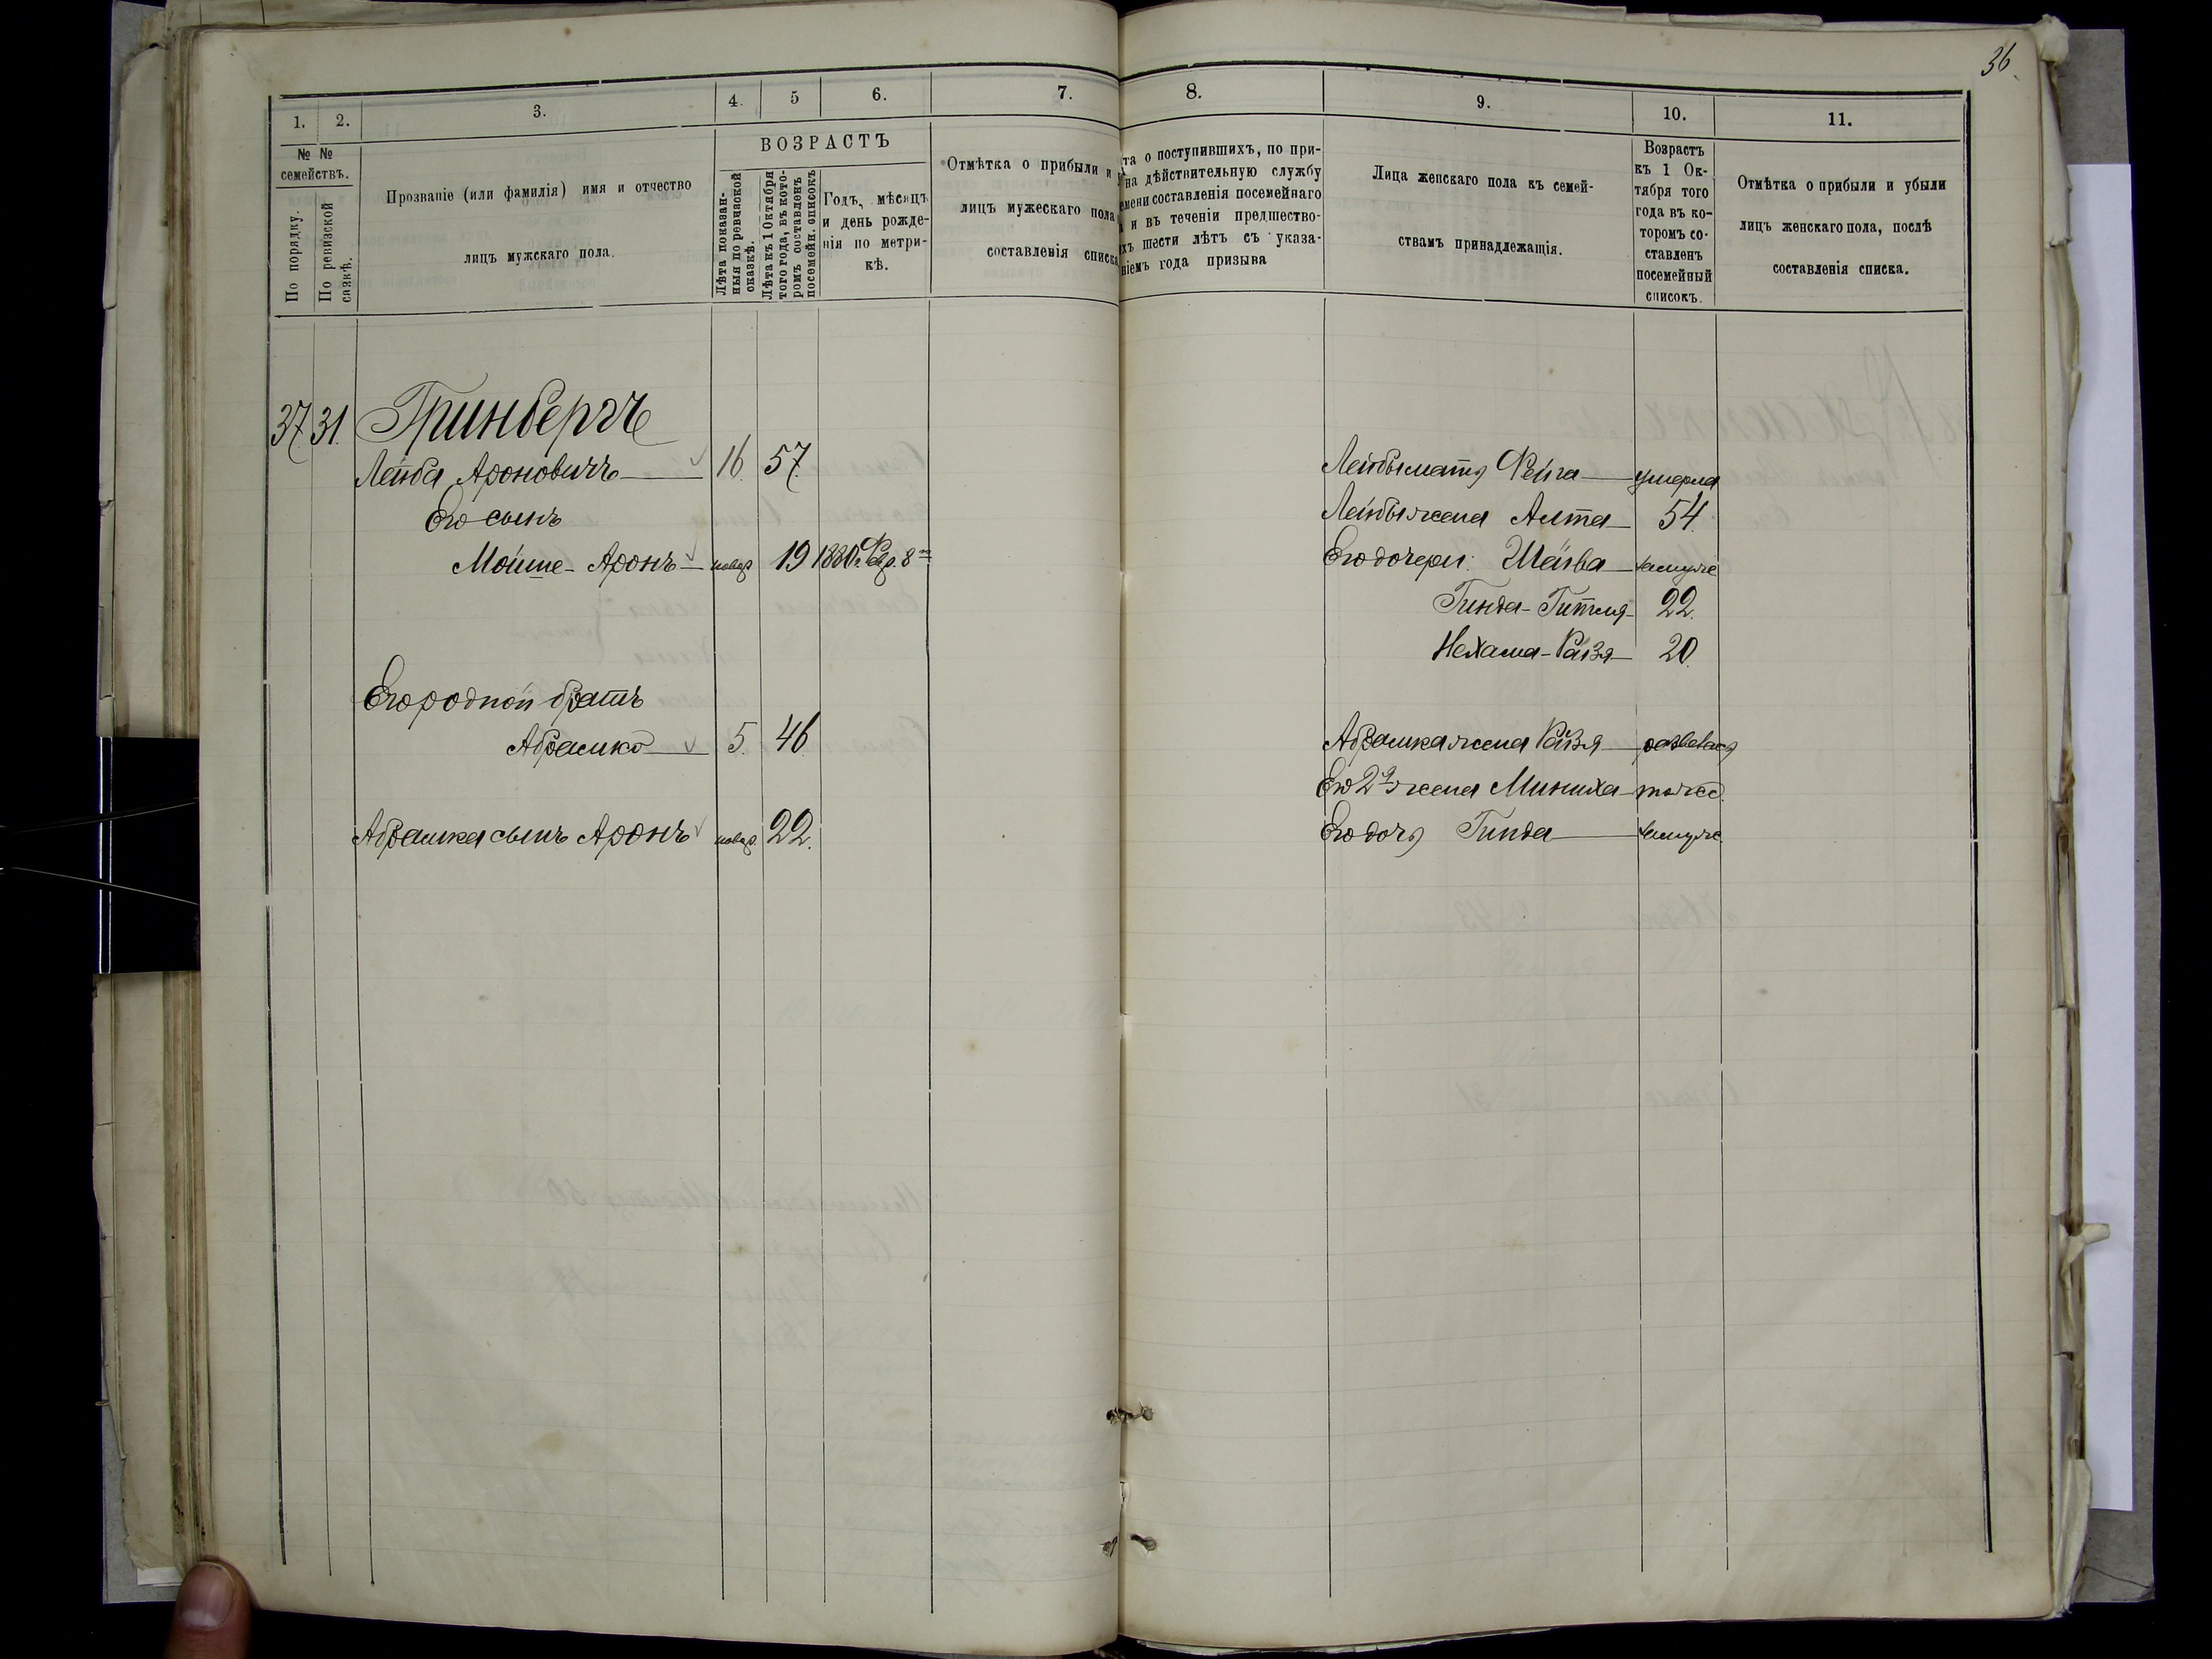 36
1. 2. 3. 4. 5 6. 7. 8. 9. 10. 11.
№ № семействъ.
По порядку.
По ревизской сазкѣ.
Прозваніе (или фамилія) имя и отчество
лицъ мужскаго пола.
ВОЗРАСТЪ
Лѣта показан-
ныя по ревизской
сказкѣ.
Лѣта къ 1 Октября
того года, въ кото-
ромъ составленъ
посемейн. списокъ
Годъ, мѣсяцъ
и день рожде-
нія по метри-
кѣ.
Отмѣтка о прибыли и
лицъ мужескаго пола
составленія списка
та о поступившихъ, по при-
на дѣйствительную службу
емени составленія посемейнаго
и въ теченіи предшество-
хъ шести лѣтъ съ указа-
ніемъ года призыва
Лица женскаго пола къ семей-
ствамъ принадлежащія.
Возрастъ
къ 1 Ок-
тября того
года въ ко-
торомъ со-
ставленъ
посемейный
списокъ.
Отмѣтка о прибыли и убыли
лицъ женскаго пола, послѣ
составленія списка.
37. 31. Гринбергъ
Лейба Ароновичъ 16. 57.
Его сынъ
Мойше-Аронъ новор. 19 1880 г. Фев. 8
Его родной братъ
Абрамко 5. 46
Абрамка сынъ Аронъ новор. 22.
Лейбы мать Фейга умерла
Лейбы жена Алта 54.
Его дочери: Шейва замуже
Гинда-Гитля 22.
Нехама-Райзя 20.
Абрамка жена Райзя разведена
Его 2я жена Миниха тожъ.
Его дочь Гинда замуже.